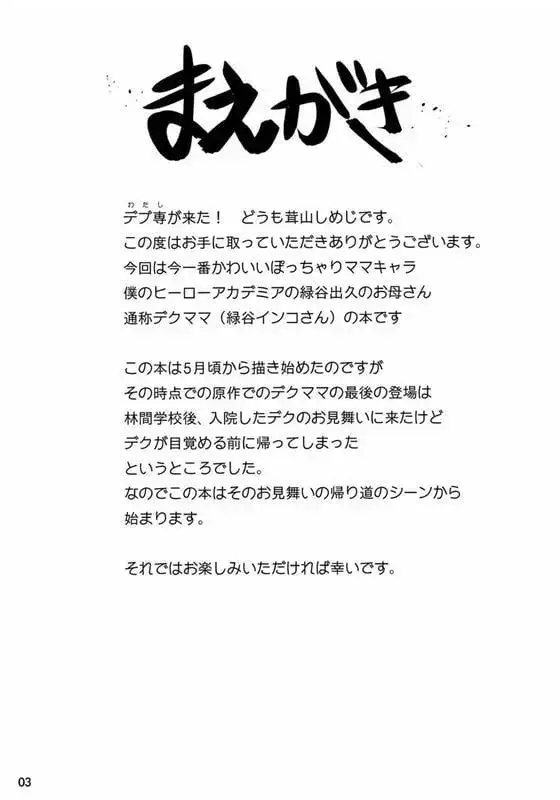 まえがき
わたし
デブ専が来た！　どうも茸山しめじです。
この度はお手に取っていただきありがとうございます。
今回は今一番かわいいぽっちゃりママキャラ
僕のヒーローアカデミアの緑谷出久のお母さん
通称デクママ（緑谷インコさん）の本です
この本は5月頃から描き始めたのですが
その時点での原作でのデクママの最後の登場は
林間学校後、入院したデクのお見舞いに来たけど
デクが目覚める前に帰ってしまった
というところでした。
なのでこの本はそのお見舞いの帰り道のシーンから
始まります。
それではお楽しみいただければ幸いです。
03